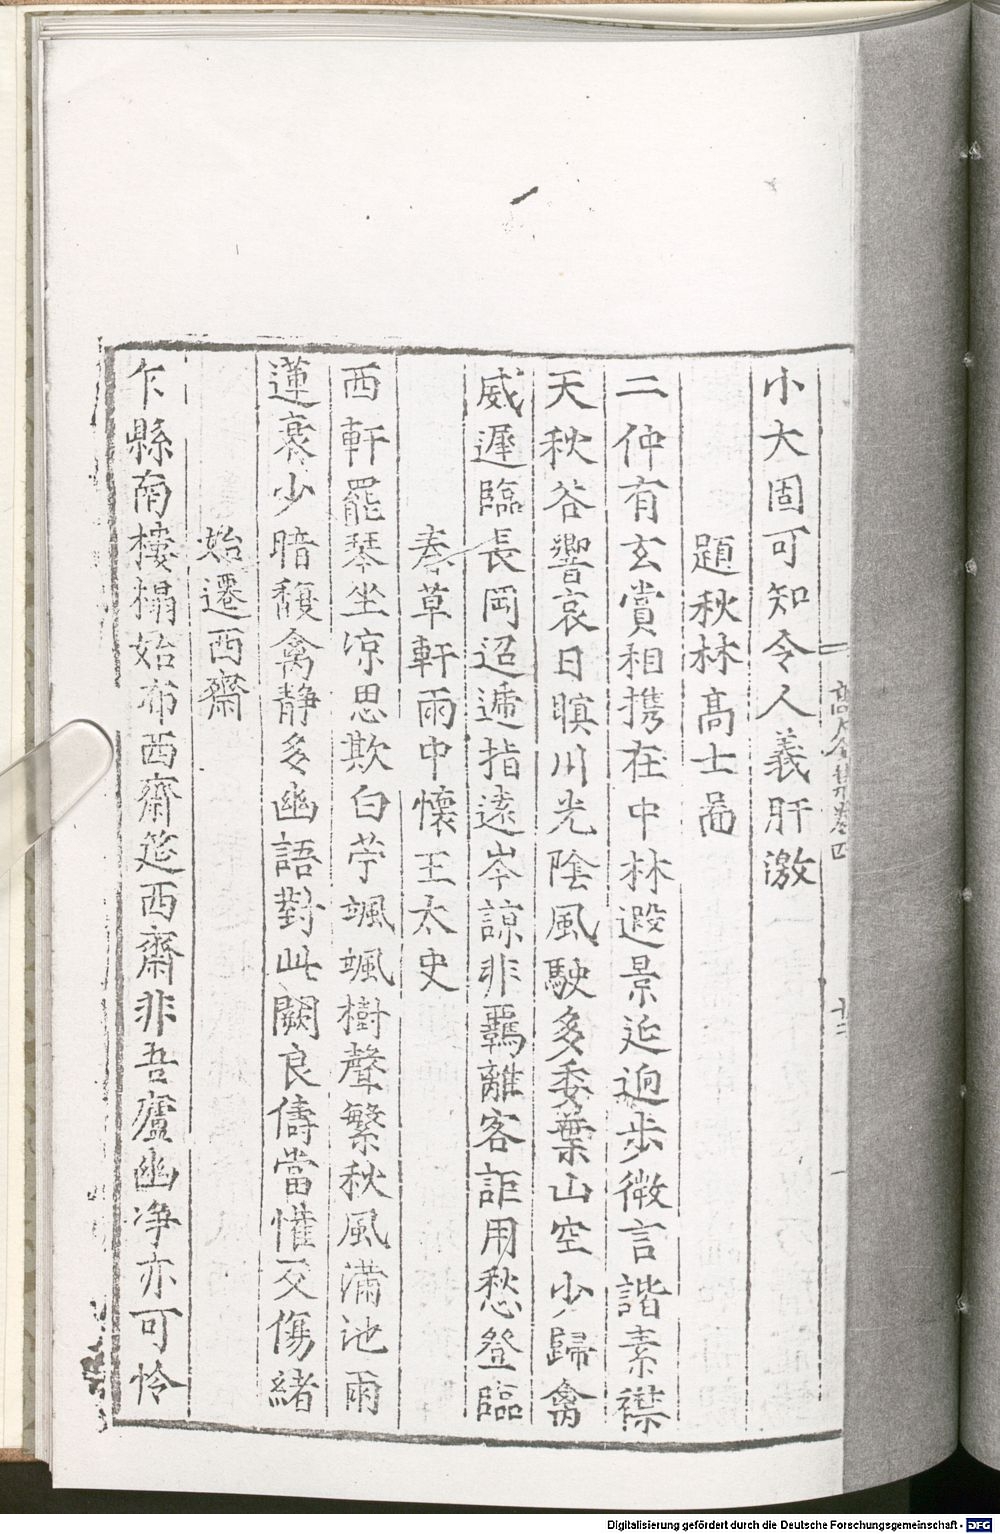 小大固可知令人義肝激
題秋林高士啚
二仲有玄賞相携在中林遐景延迥步微言諧素襟
天秋谷響哀日暝川光陰風駛多委葉山空少歸禽
威遲臨長岡迢遞指遠岑諒非羈離客詎用愁登臨
奏草軒雨中懷王太史
西軒罷琴坐凉思欺白苧颯颯樹聲繁秋風滿池雨
蓮衰少暗馥禽静多幽語對此闕良儔當懽反傷緒
始遷西齋
乍縣南樓榻始布西齋筵西齋非吾廬幽净亦可怜
Digitalisierung gefördert durch die Deutsche Forschungsgemeinschaft - DFG